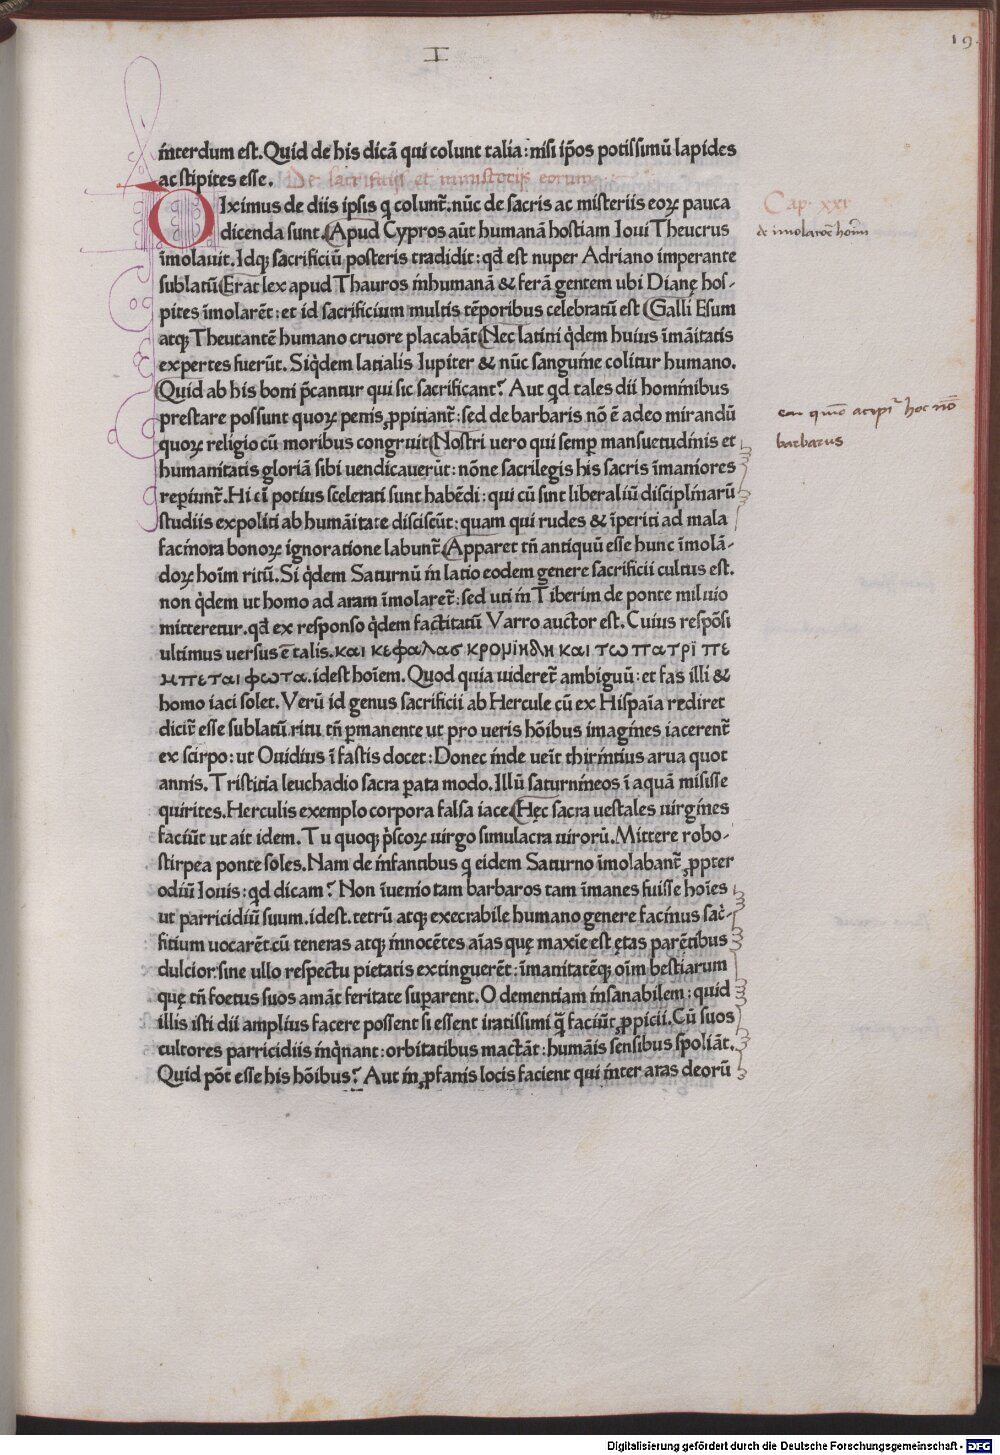 I
19.
interdum est. Quid de his dicā qui colunt talia: nisi ip̄os potissimū lapides
ac stipites esse. De sacrificijs et ministerijs eorum
Cap. xxi
DIximus de diis ipsis q̨ colunt᷑. nūc de sacris ac misteriis eoꝝ pauca
dicenda sunt. Apud Cypros aūt humanā hostiam Ioui Theucrus
īmolauit. Idqꝫ sacrificiū posteris tradidit: qd̄ est nuper Adriano imperante
sublatū Erat lex apud Thauros inhumanā & ferā gentem ubi Dianę hos-
pites īmolarēt: et id sacrificium multis tēporibus celebratū est Galli Esum
atqꝫ Theutantē humano cruore placabāt Nec latini q̇dem huius īmāitatis
expertes fuerūt. Siq̇dem latialis Iupiter & nūc sanguine colitur humano.
Quid ab his boni p̄cantur qui sic sacrificant? Aut qd tales dii hominibus
prestare possunt quoꝝ penis ꝓpitiant᷑: sed de barbaris nō ē adeo mirandū
quoꝝ religio cū moribus congruit Nostri uero qui semꝑ mansuetudinis et
humanitatis gloriā sibi uendicauerūt: nōne sacrilegis his sacris īmaniores
reꝑiunt᷑. Hi eī potius scelerati sunt habēdi: qui cū sint liberaliū disciplinarū
studiis expoliti ab humāitate disciscūt: quam qui rudes & īperiti ad mala
facinora bonoꝝ ignoratione labunt᷑ Apparet tn̄ antiquū esse hunc īmolā-
doꝝ hoīm ritū. Si q̇dem Saturnū in latio eodem genere sacrificii cultus est.
non q̇dem ut homo ad aram īmolaret᷑: sed uti in Tiberim de ponte miluio
mitteretur. qd̄ ex responso q̇dem factitatū Varro auctor est. Cuius respōsi
ultimus uersus ē talis. και κεφαλασ κρονιηδη και τω πατρι πε
μπεται φωτα. idest hoīem. Quod quia uideret᷑ ambiguū: et fas illi &
homo iaci solet. Verū id genus sacrificii ab Hercule cū ex Hispaīa rediret
dicit᷑ esse sublatū. ritu tn̄ ꝑmanente ut pro ueris hōibus imagines iacerent᷑
ex scirpo: ut Ouidius ī fastis docet: Donec inde ueīt thirintius arua quot
annis. Tristitia leuchadio sacra ꝑata modo. Illū saturnineos ī aquā misisse
quirites. Herculis exemplo corpora falsa iace Hęc sacra uestales uirgines
faciūt ut ait idem. Tu quoqꝫ p̀scoꝝ uirgo simulacra uirorū. Mittere robo-
stirpea ponte soles. Nam de infantibus q̨ eidem Saturno īmolabant᷑ ꝓpter
odiū Iouis: qd dicam? Non īuenio tam barbaros tam īmanes fuisse hoīes
ut parricidiū suum. idest. tetrū atqꝫ execrabile humano genere facinus sac̀-
fitium uocarēt cū teneras atqꝫ innocētes aīas quę maxīe est ętas parētibus
dulcior sine ullo respectu pietatis extinguerēt: īmanitatēqꝫ oīm bestiarum
quę tn̄ foetus suos amāt feritate suꝑarent. O dementiam insanabilem: quid
illis isti dii amplius facere possent si essent iratissimi q̄ faciūt ꝓpicii. Cū suos
cultores parricidiis inq̀nant: orbitatibus mactāt: humāis sensibus spoliāt.
Quid pōt esse his hōibus? Aut in ꝓfanis locis facient qui inter aras deorū
barbarus
Digitalisierung gefördert durch die Deutsche Forschungsgemeinschaft - DFG